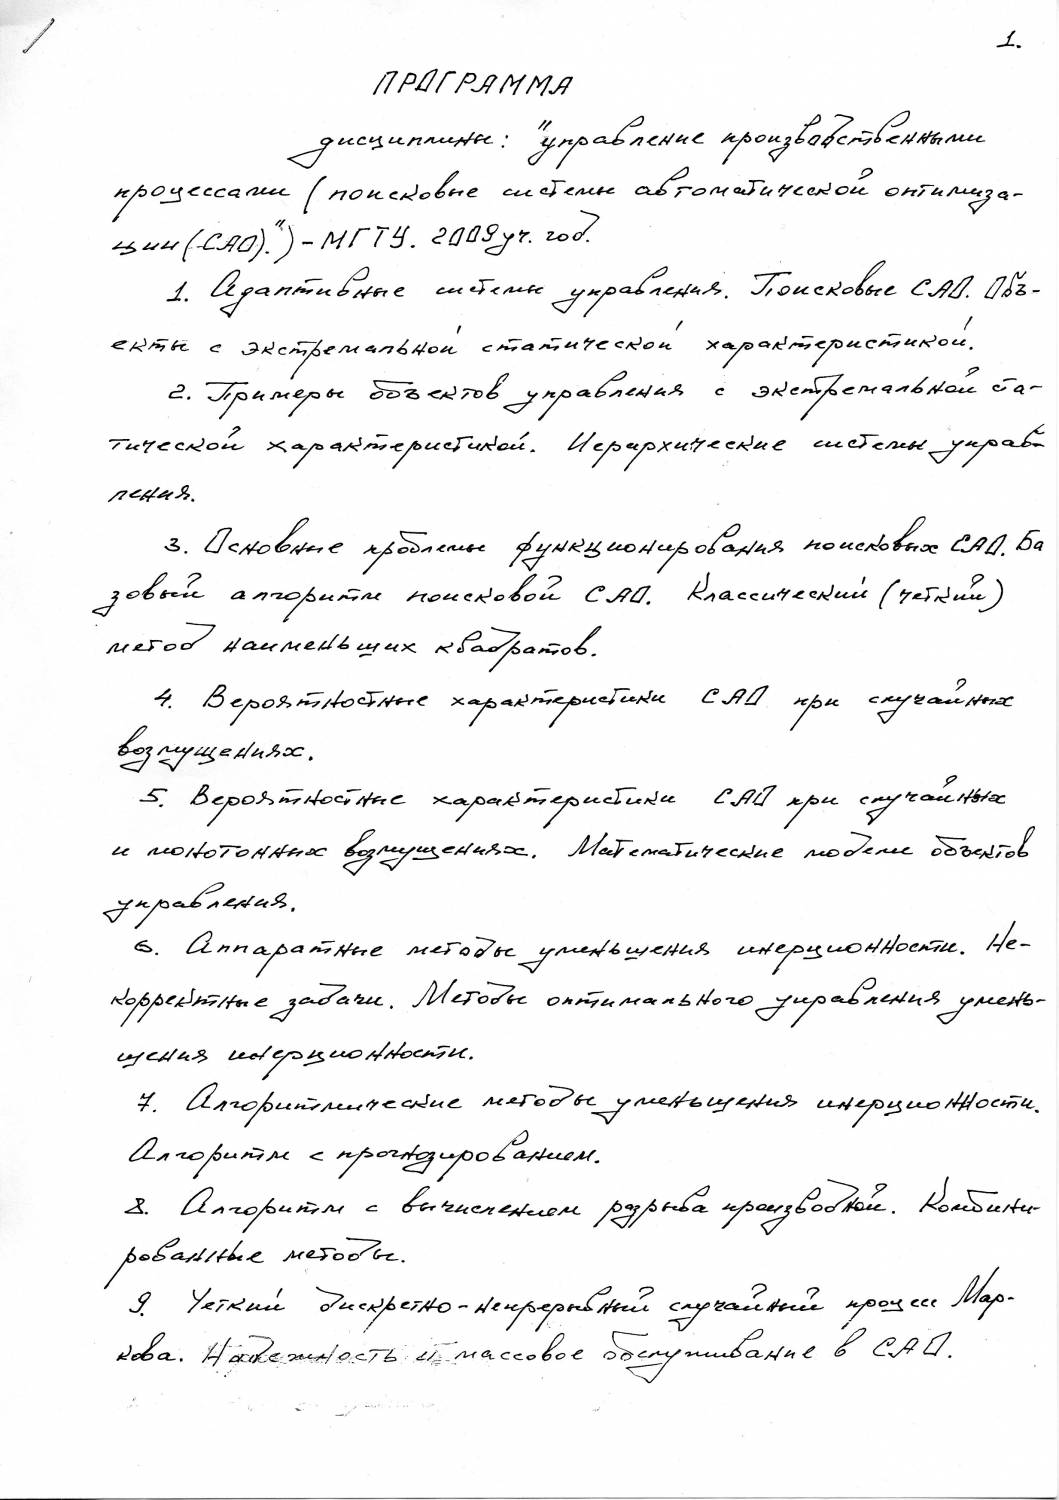 1.
ПРОГРАММА
дисциплины: "управление производственными
процессами (поисковые системы автоматической оптимиза-
ции (САО).") - МГТУ. 2009 уч. год.
1. Адаптивные системы управления. Поисковые САО. Объ-
екты с экстремальной статической характеристикой.
2. Примеры объектов управления с экстремальной ста-
тической характеристикой. Иерархические системы управ-
ления.
3. Основные проблемы функционирования поисковых САО. Ба
зовый алгоритм поисковой САО. Классический (четкий)
метод наименьших квадратов.
4. Вероятностные характеристики САО при случайных
возмущениях.
5. Вероятностные характеристики САО при случайных
и монотонных возмущениях. Математические модели объектов
управления.
6. Аппаратные методы уменьшения инерционности. Не-
корректные задачи. Методы оптимального управления умень-
шения инерционности.
7. Алгоритмические методы уменьшения инерционности.
Алгоритм с прогнозированием.
8. Алгоритм с вычислением разрыва производной. Комбини-
рованные методы.
9. Четкий дискретно-непрерывный случайный процесс Мар-
кова. Надежность и массовое обслуживание в САО.